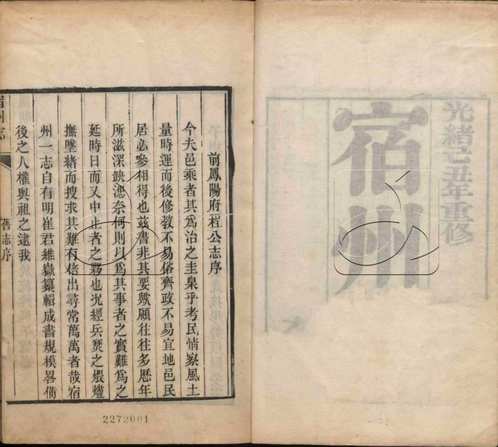 光緒己丑年重修
宿州
前鳳陽府程公志序
今夫邑乘者其為治之圭臬乎考民情察風土
量時運而後修教不易俗齊政不易宜地邑民
居必參相得也茲書非其要歟顧往往多歷年
所滋深缺漶奈何則以為其事者之實難為之
延時日而又中止者之夥也況經兵燹之煨燼
撫墜緒而搜求其難有倍出尋常萬萬者哉宿
州一志自有明崔君維嶽纂輯成書規模畧備
後之人權輿祖之逮我
宿州志
舊志序
2272001